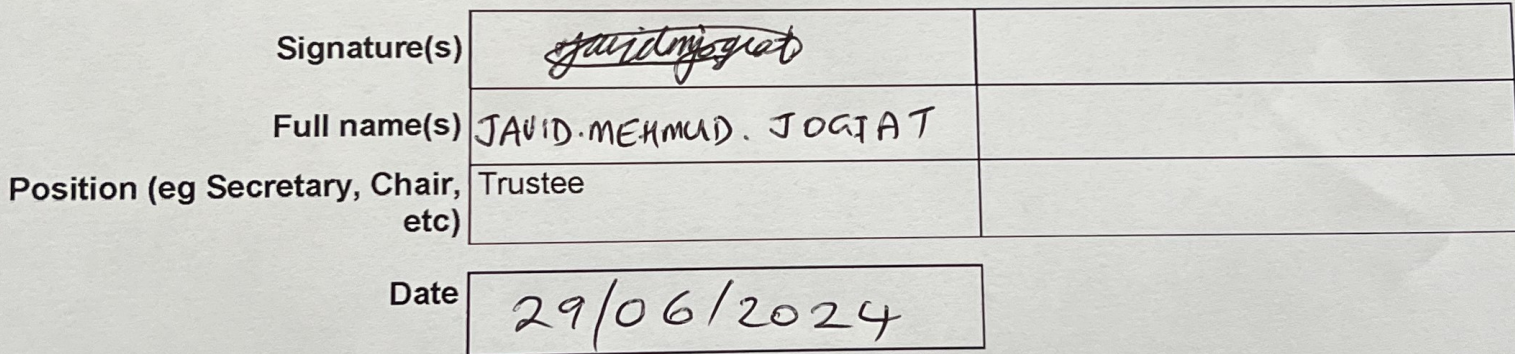 Signature(s)
Full name(s) JAVID.MEHMUD. JOGIAT
Position (eg Secretary, Chair, Trustee
etc)
Date 29/06/2024